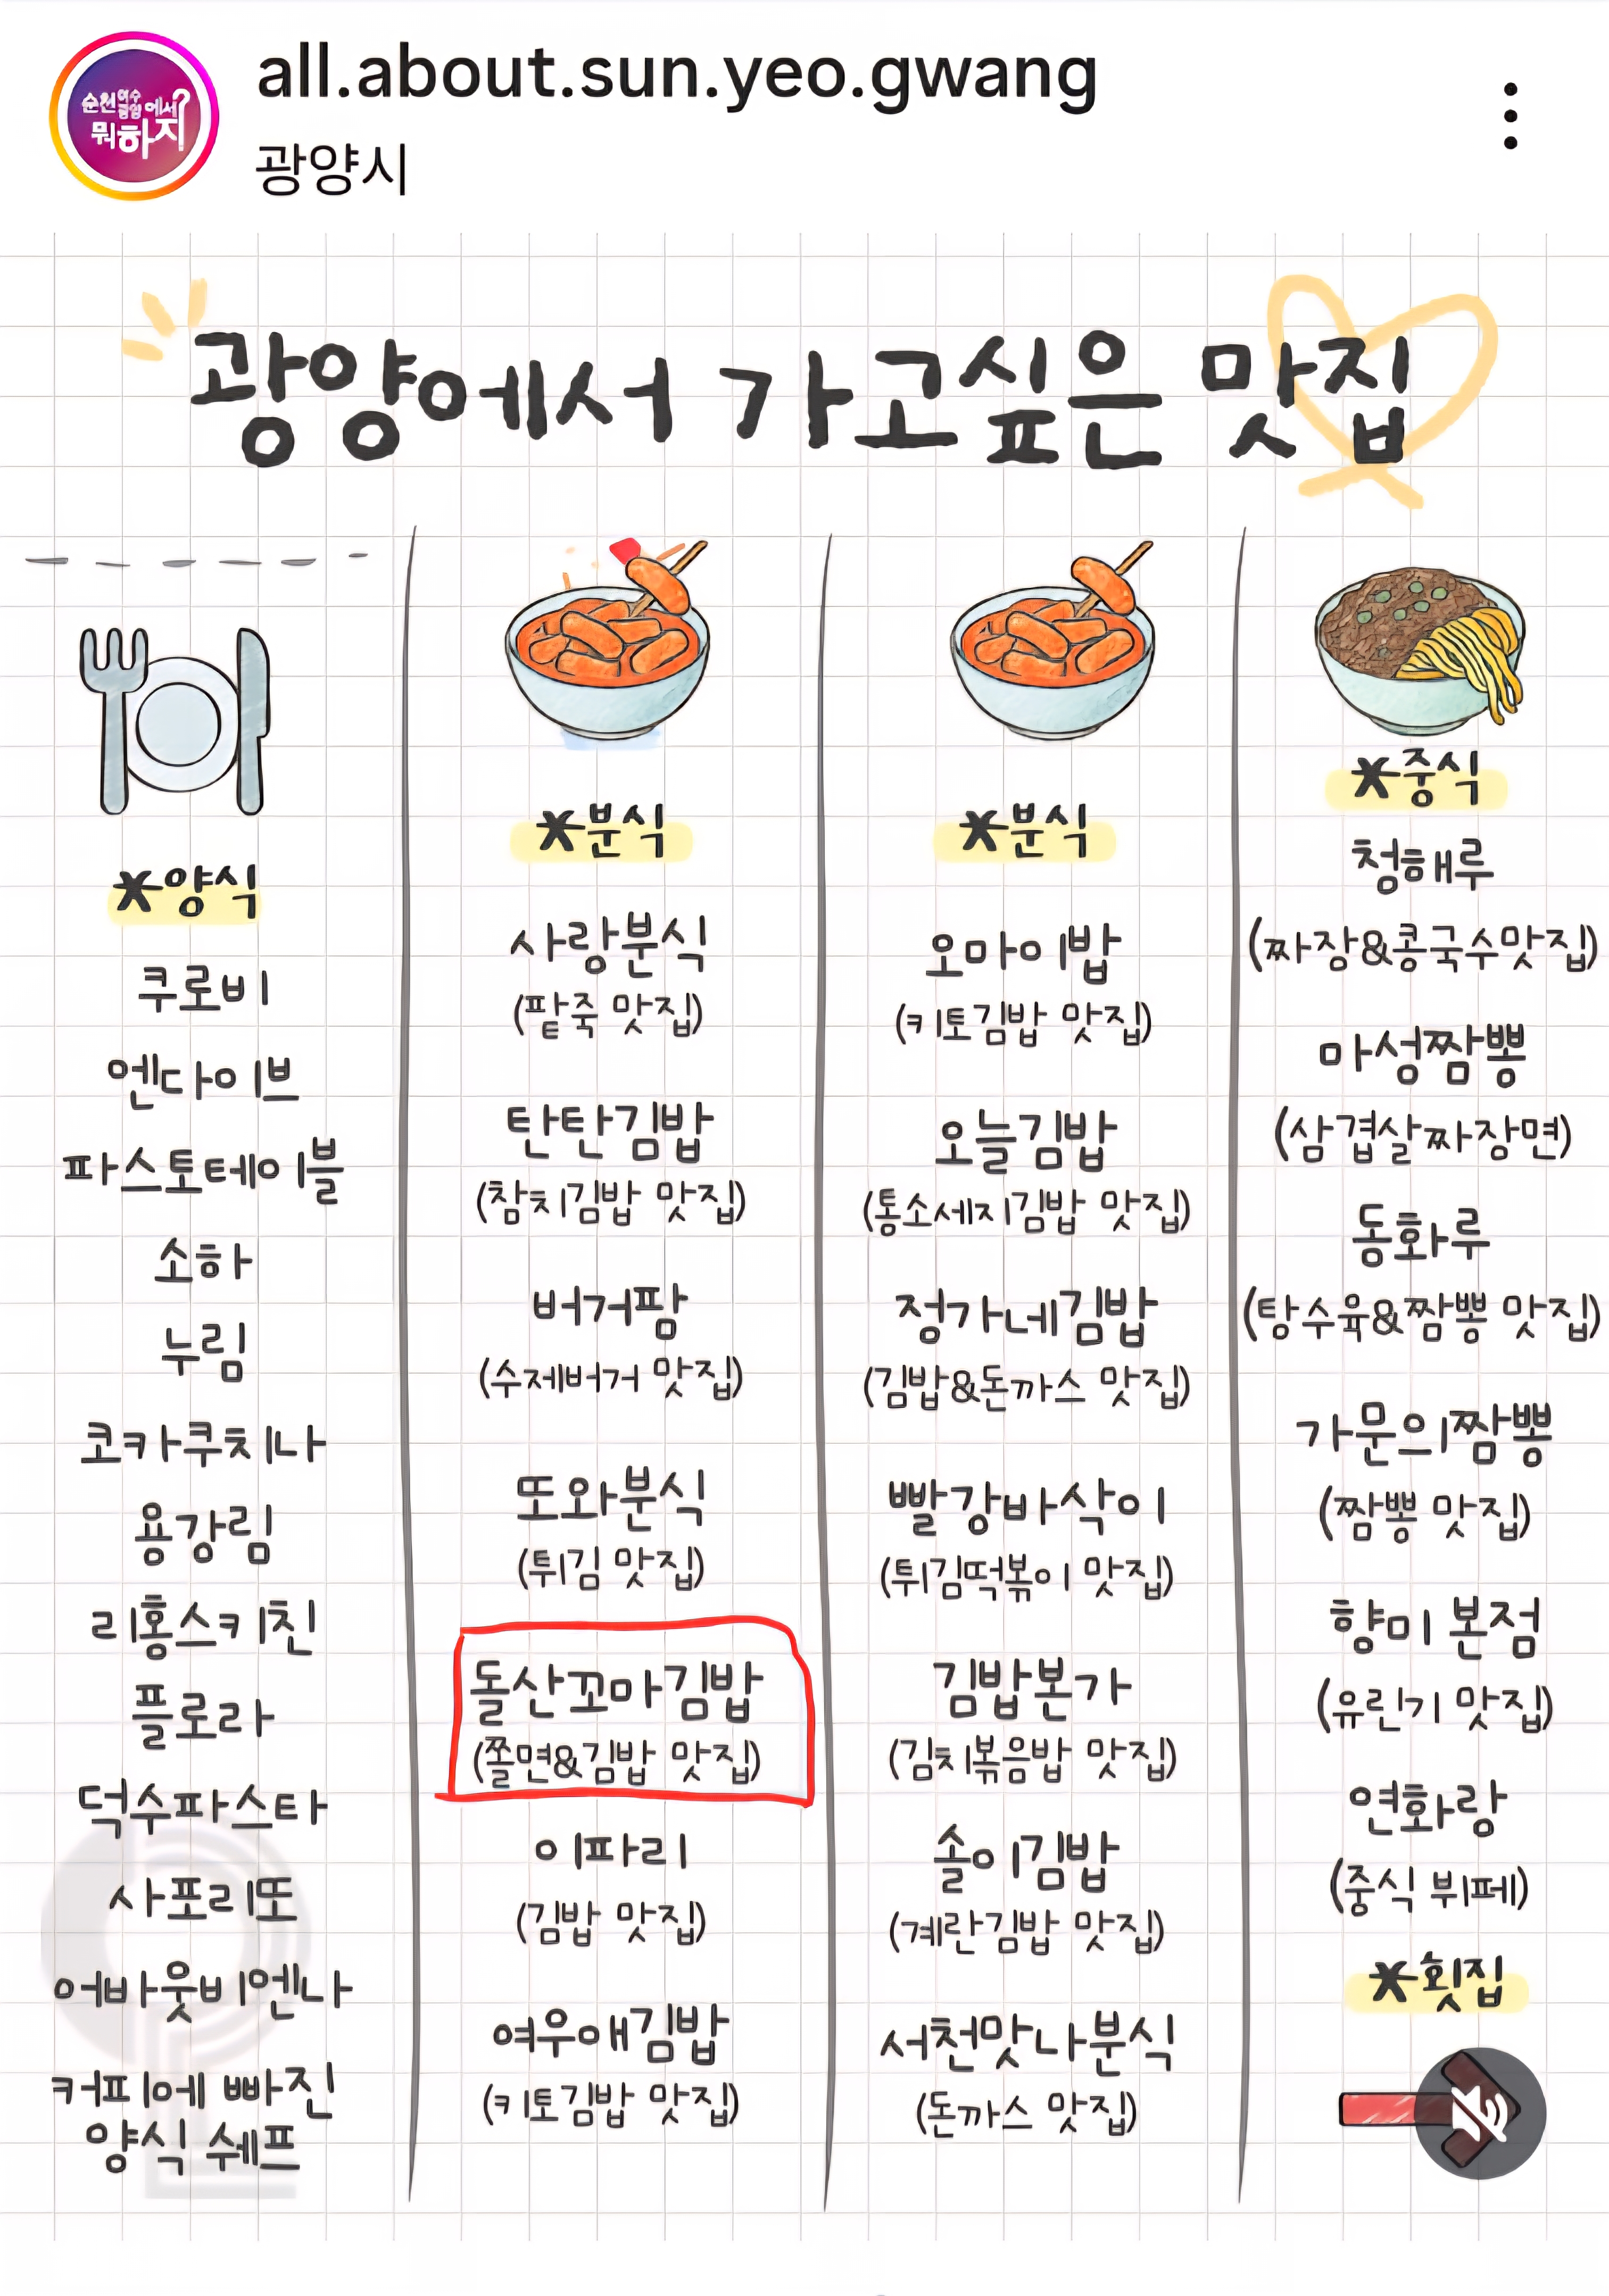 순천여수광양에서?
뭐하지
all.about.sun.yeo.gwang
광양시
광양에서 가고싶은 맛집
*양식
쿠로비
엔다이브
파스토테이블
소하
누림
코카쿠치나
용강림
리홍스키친
플로라
덕수파스타
사포리또
어바웃비엔나
커피에 빠진
양식 쉐프
*분식
사랑분식
(팥죽 맛집)
탄탄김밥
(참치김밥 맛집)
버거팜
(수제버거 맛집)
또와분식
(튀김 맛집)
돌산꼬마김밥
(쫄면&김밥 맛집)
이파리
(김밥 맛집)
여우애김밥
(키토김밥 맛집)
*분식
오마이밥
(키토김밥 맛집)
오늘김밥
(통소세지김밥 맛집)
정가네김밥
(김밥&돈까스 맛집)
빨강바삭이
(튀김떡볶이 맛집)
김밥본가
(김치볶음밥 맛집)
솔이김밥
(계란김밥 맛집)
서천맛나분식
(돈까스 맛집)
*중식
청해루
(짜장&콩국수맛집)
마성짬뽕
(삼겹살짜장면)
동화루
(탕수육&짬뽕 맛집)
가문의짬뽕
(짬뽕 맛집)
향미 본점
(유린기 맛집)
연화랑
(중식 뷔페)
*횟집